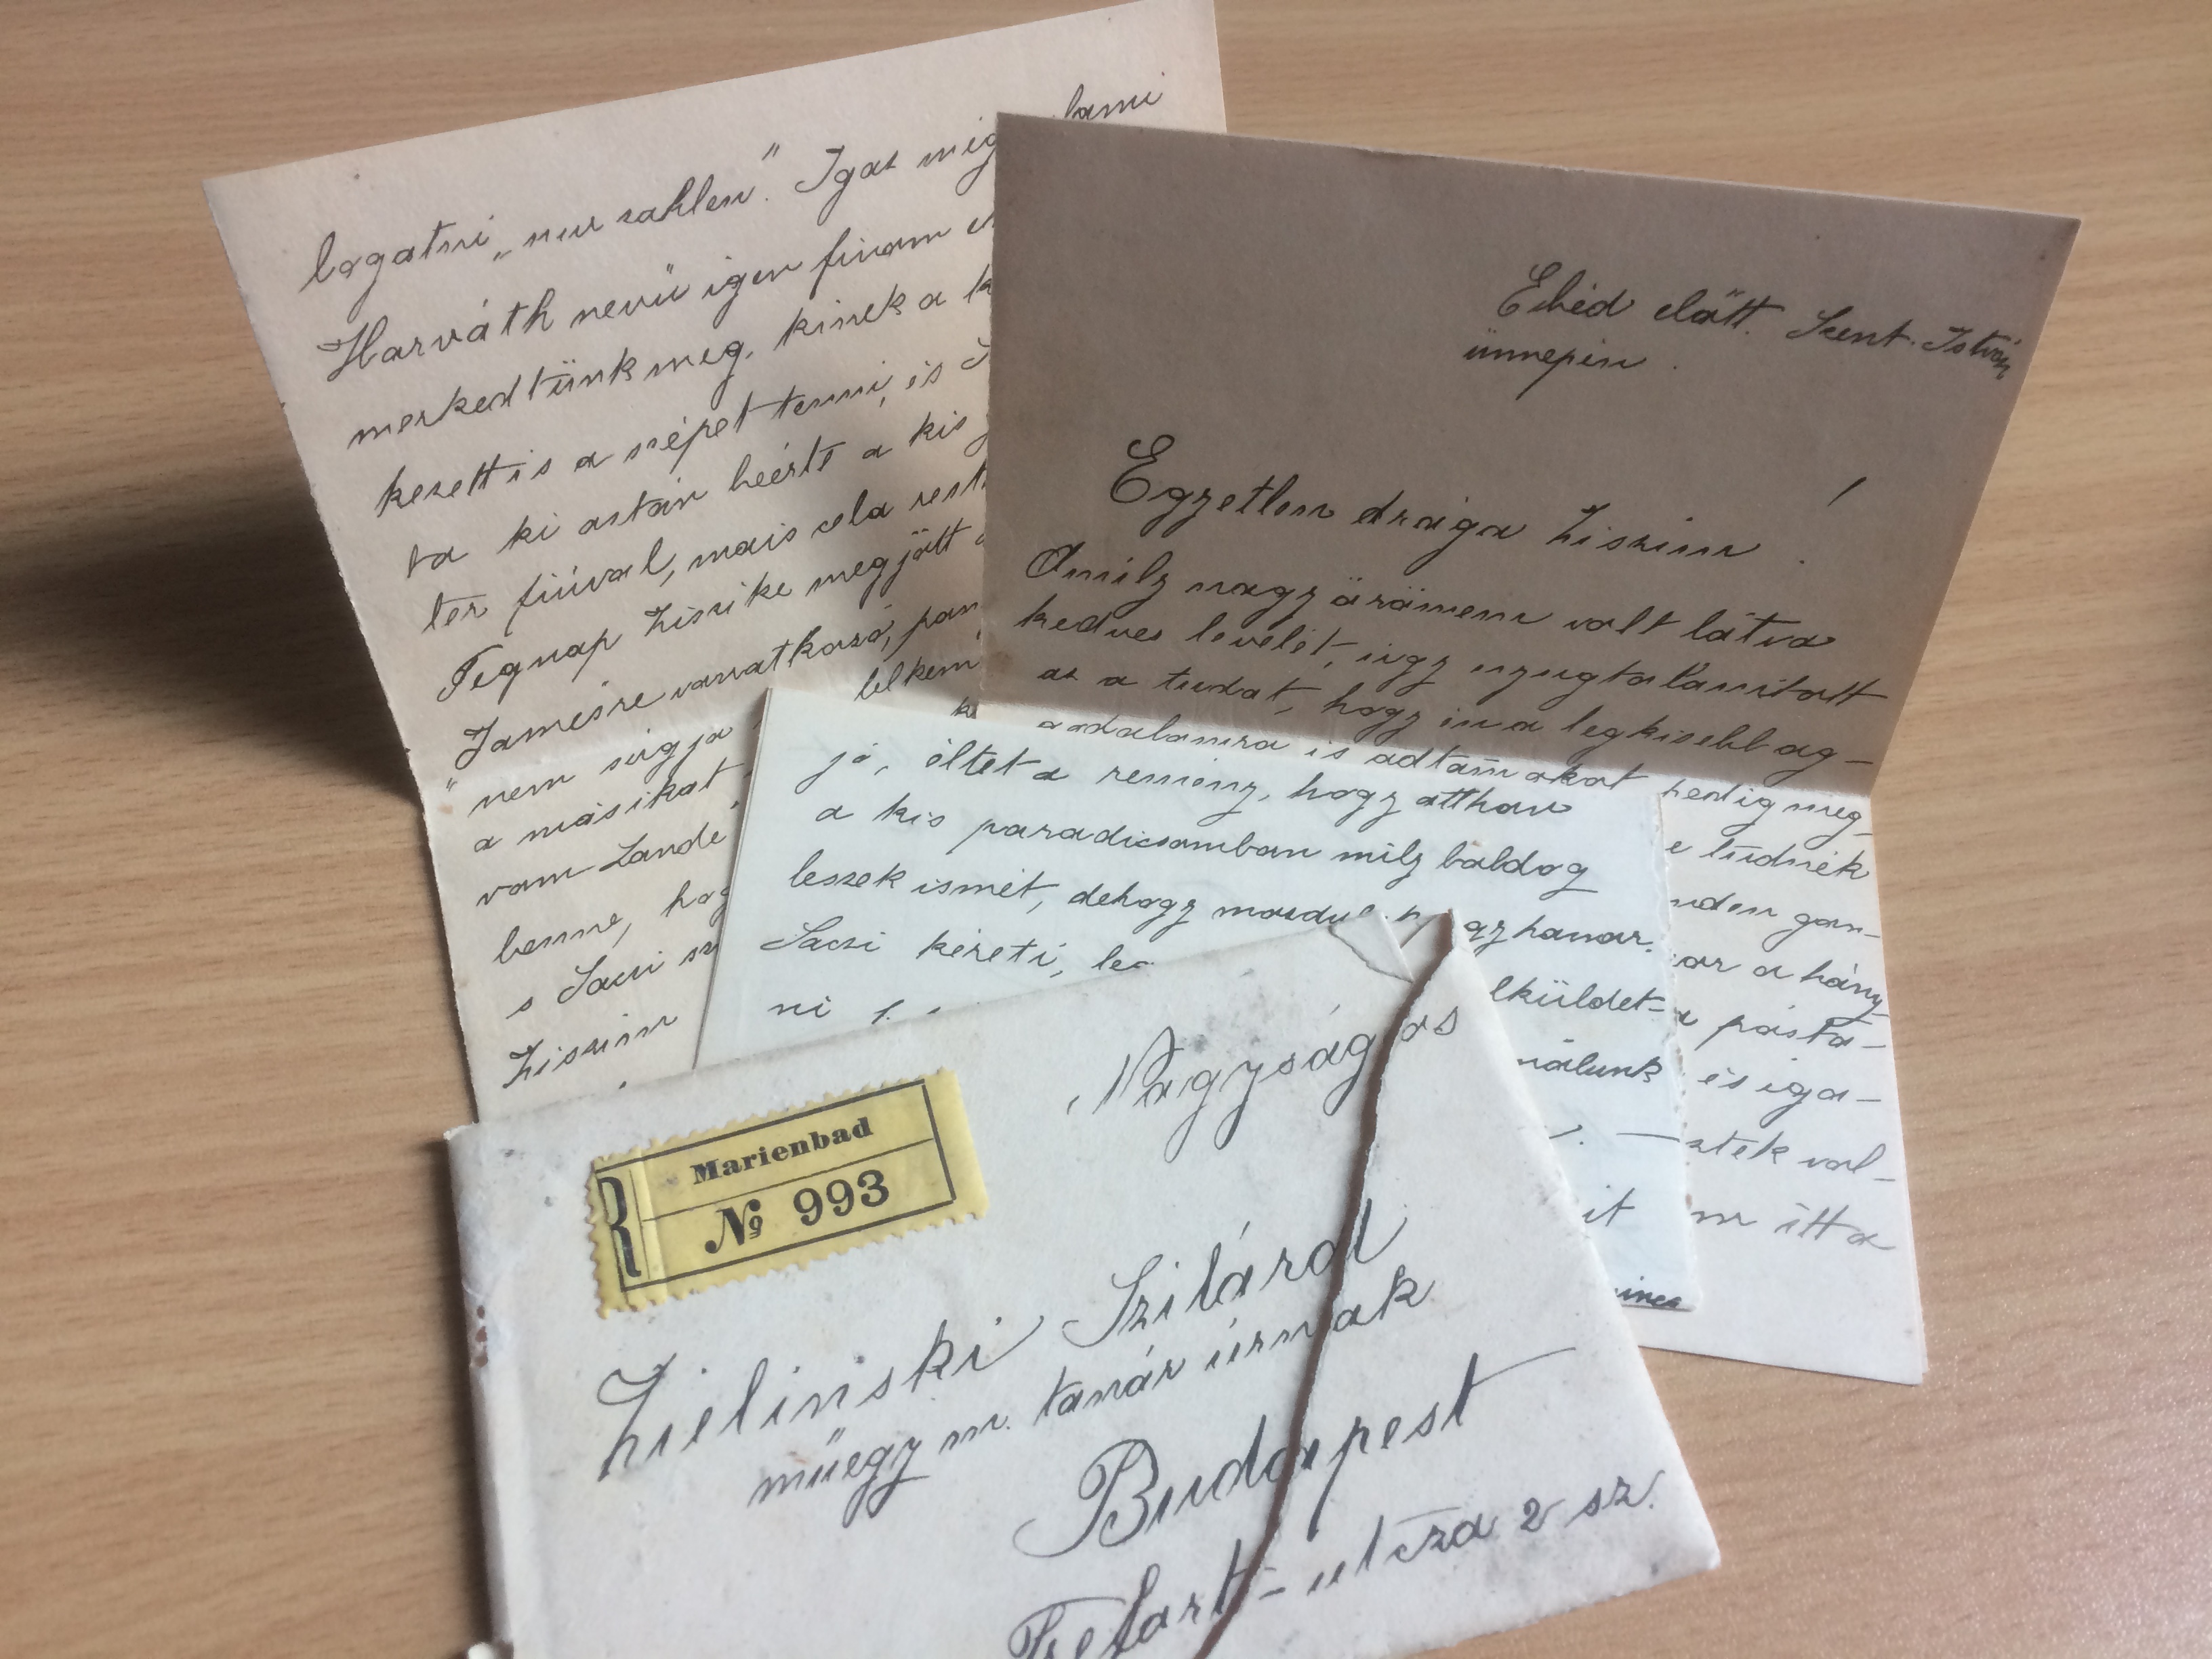 logatni „nur zahlen". Igaz míg
lami
Horváth nevü igen finom
merkedtünk meg, kinek a k
kezett is a szépet tenni, és
ta ki aztán beérte a kis
ter fiúval, mais cela rest
Tegnap Ziszike megjött
Jamesre vonatkozó, pan
nem súgja
lelkem
a másikat
vom Lande
benne, hog
s Saczi sz
Ziszim
Ebéd előtt. Szent. István
ünnepén.
Egyetlen drága Ziszim!
Amily nagy örömem volt látva
kedves levelét, úgy nyugtalanitott
az a tudat, hogy én a legkisebb ag-
godalomra is adtam okot pedig meg-
e tudnék
nden gon-
or a hány
posta-
és iga-
ztek vol-
m itt a
jó, éltet a remény, hogy otthon
a kis paradicsomban mily boldog
leszek ismét, dehogy mozdul
gy hamar.
Saczi kéreti,
lküldet-
ni
nálunk
it
Marienbad
R
№ 993
Nagyságos
Zielinski Szilárd
müegy m. tanár úrnak
Budapest
utcza 2 sz.